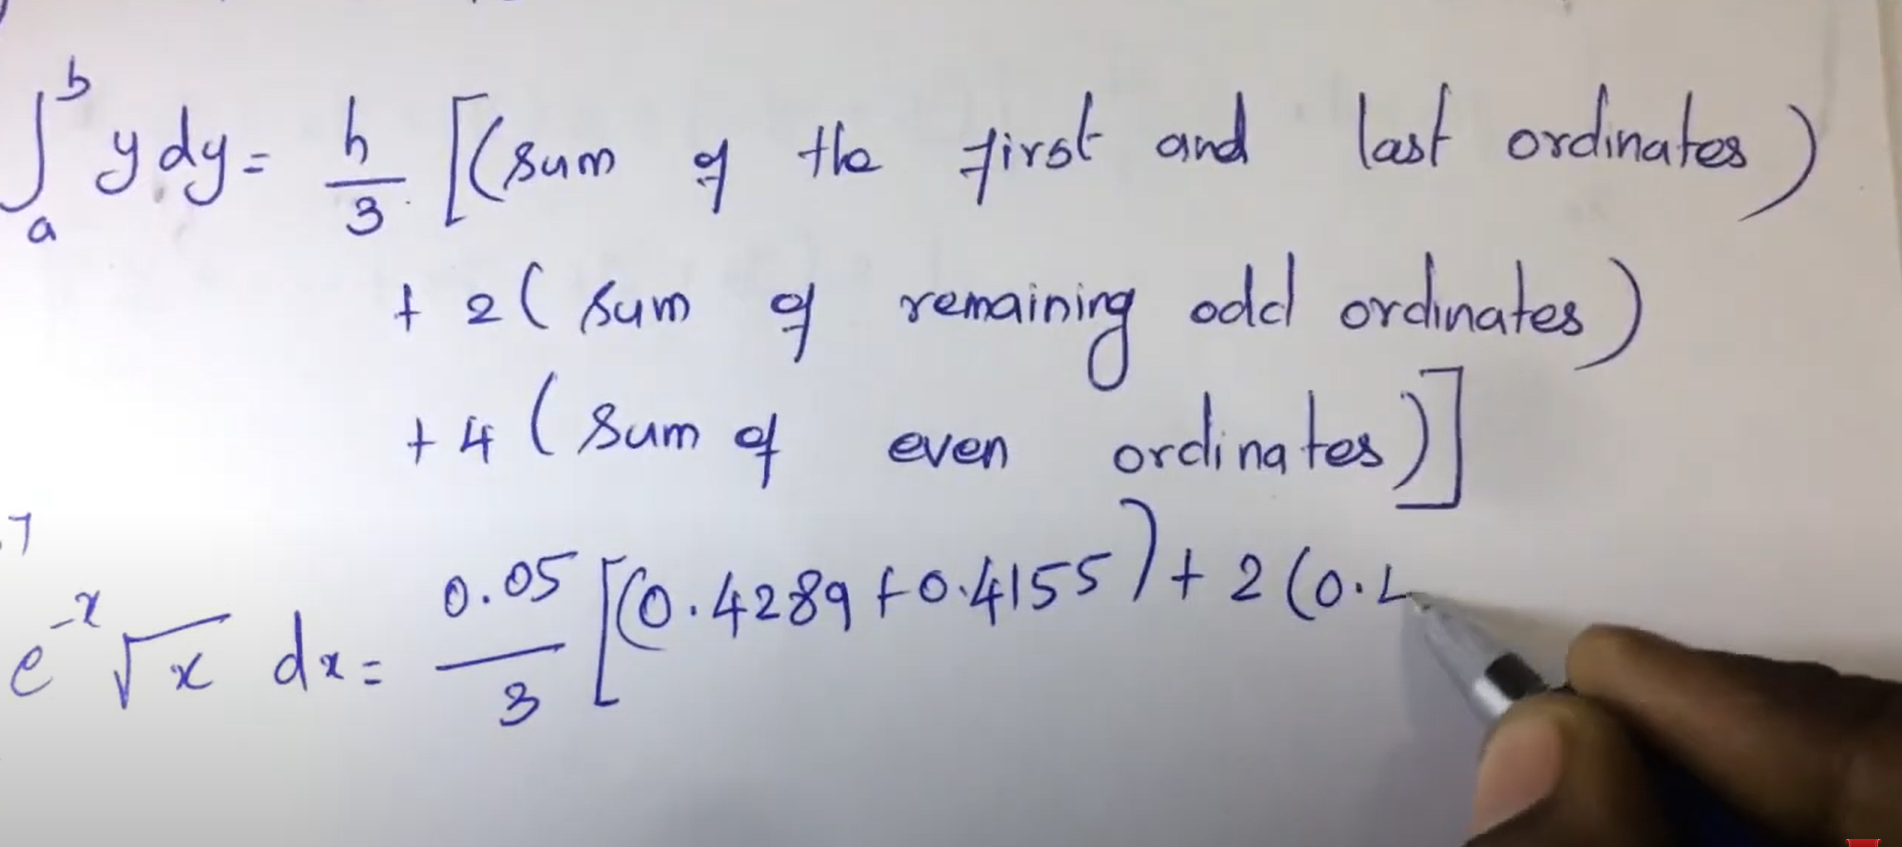 ∫ₐᵇ y dy = h/3 [(sum of the first and last ordinates)
+ 2 ( sum of remaining odd ordinates)
+ 4 ( sum of even ordinates)]
.7
e⁻ˣ √x dx = 0.05/3 [(0.4289 + 0.4155) + 2 (0.4